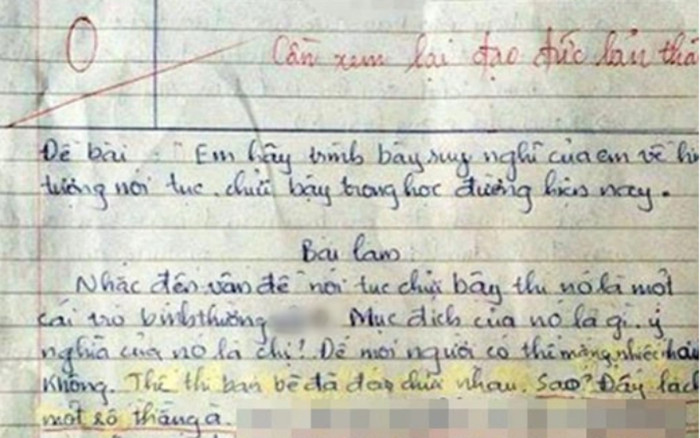 0
Cần xem lại đạo đức bản thâ
Đề bài : " Em hãy trình bày suy nghĩ của em về hiệ
tượng nói tục, chửi bậy trong học đường hiện nay.
Bài làm
Nhắc đến vấn đề nói tục chửi bậy thì nó là một
cái trò bình thường Mục đích của nó là gì, ý
nghĩa của nó là chi! Để mọi người có thể mắng nhiếc nhau
không. Thế thì bạn bè đã đảo chửi nhau. Sao? Đấy là c
một số thằng à.